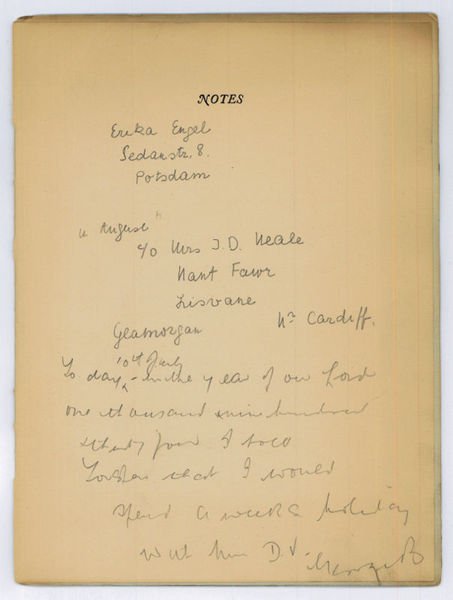 NOTES
Erika Engel
Sedanstr. 8.
Potsdam
"August"
c/o Mrs J. D. Neale
Nant Fawr
Lisvane
Glamorgan Nr Cardiff.
10th July
To day, - in the year of our Lord
one thousand nine hundred
thirty four I told
that I would
spend a weeks holiday
with him D.V.